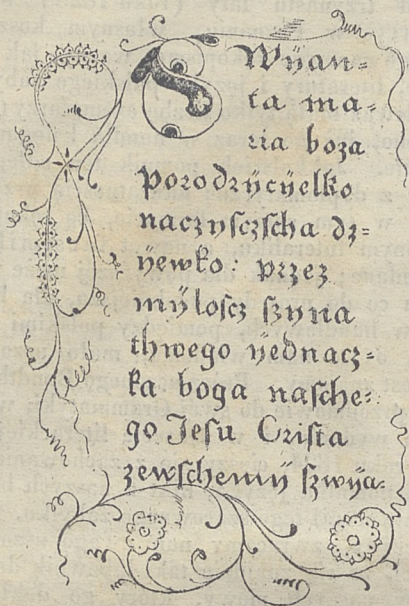 SWÿan=
ta ma=
ria boza
porodzÿcÿelko
naczyſczſcha dz=
ÿewko: przez
mÿloſcz ſzyna
thwego ÿednacz=
ka boga naſche=
go Jeſu Criſta
zewſchemÿ ſzwÿa=